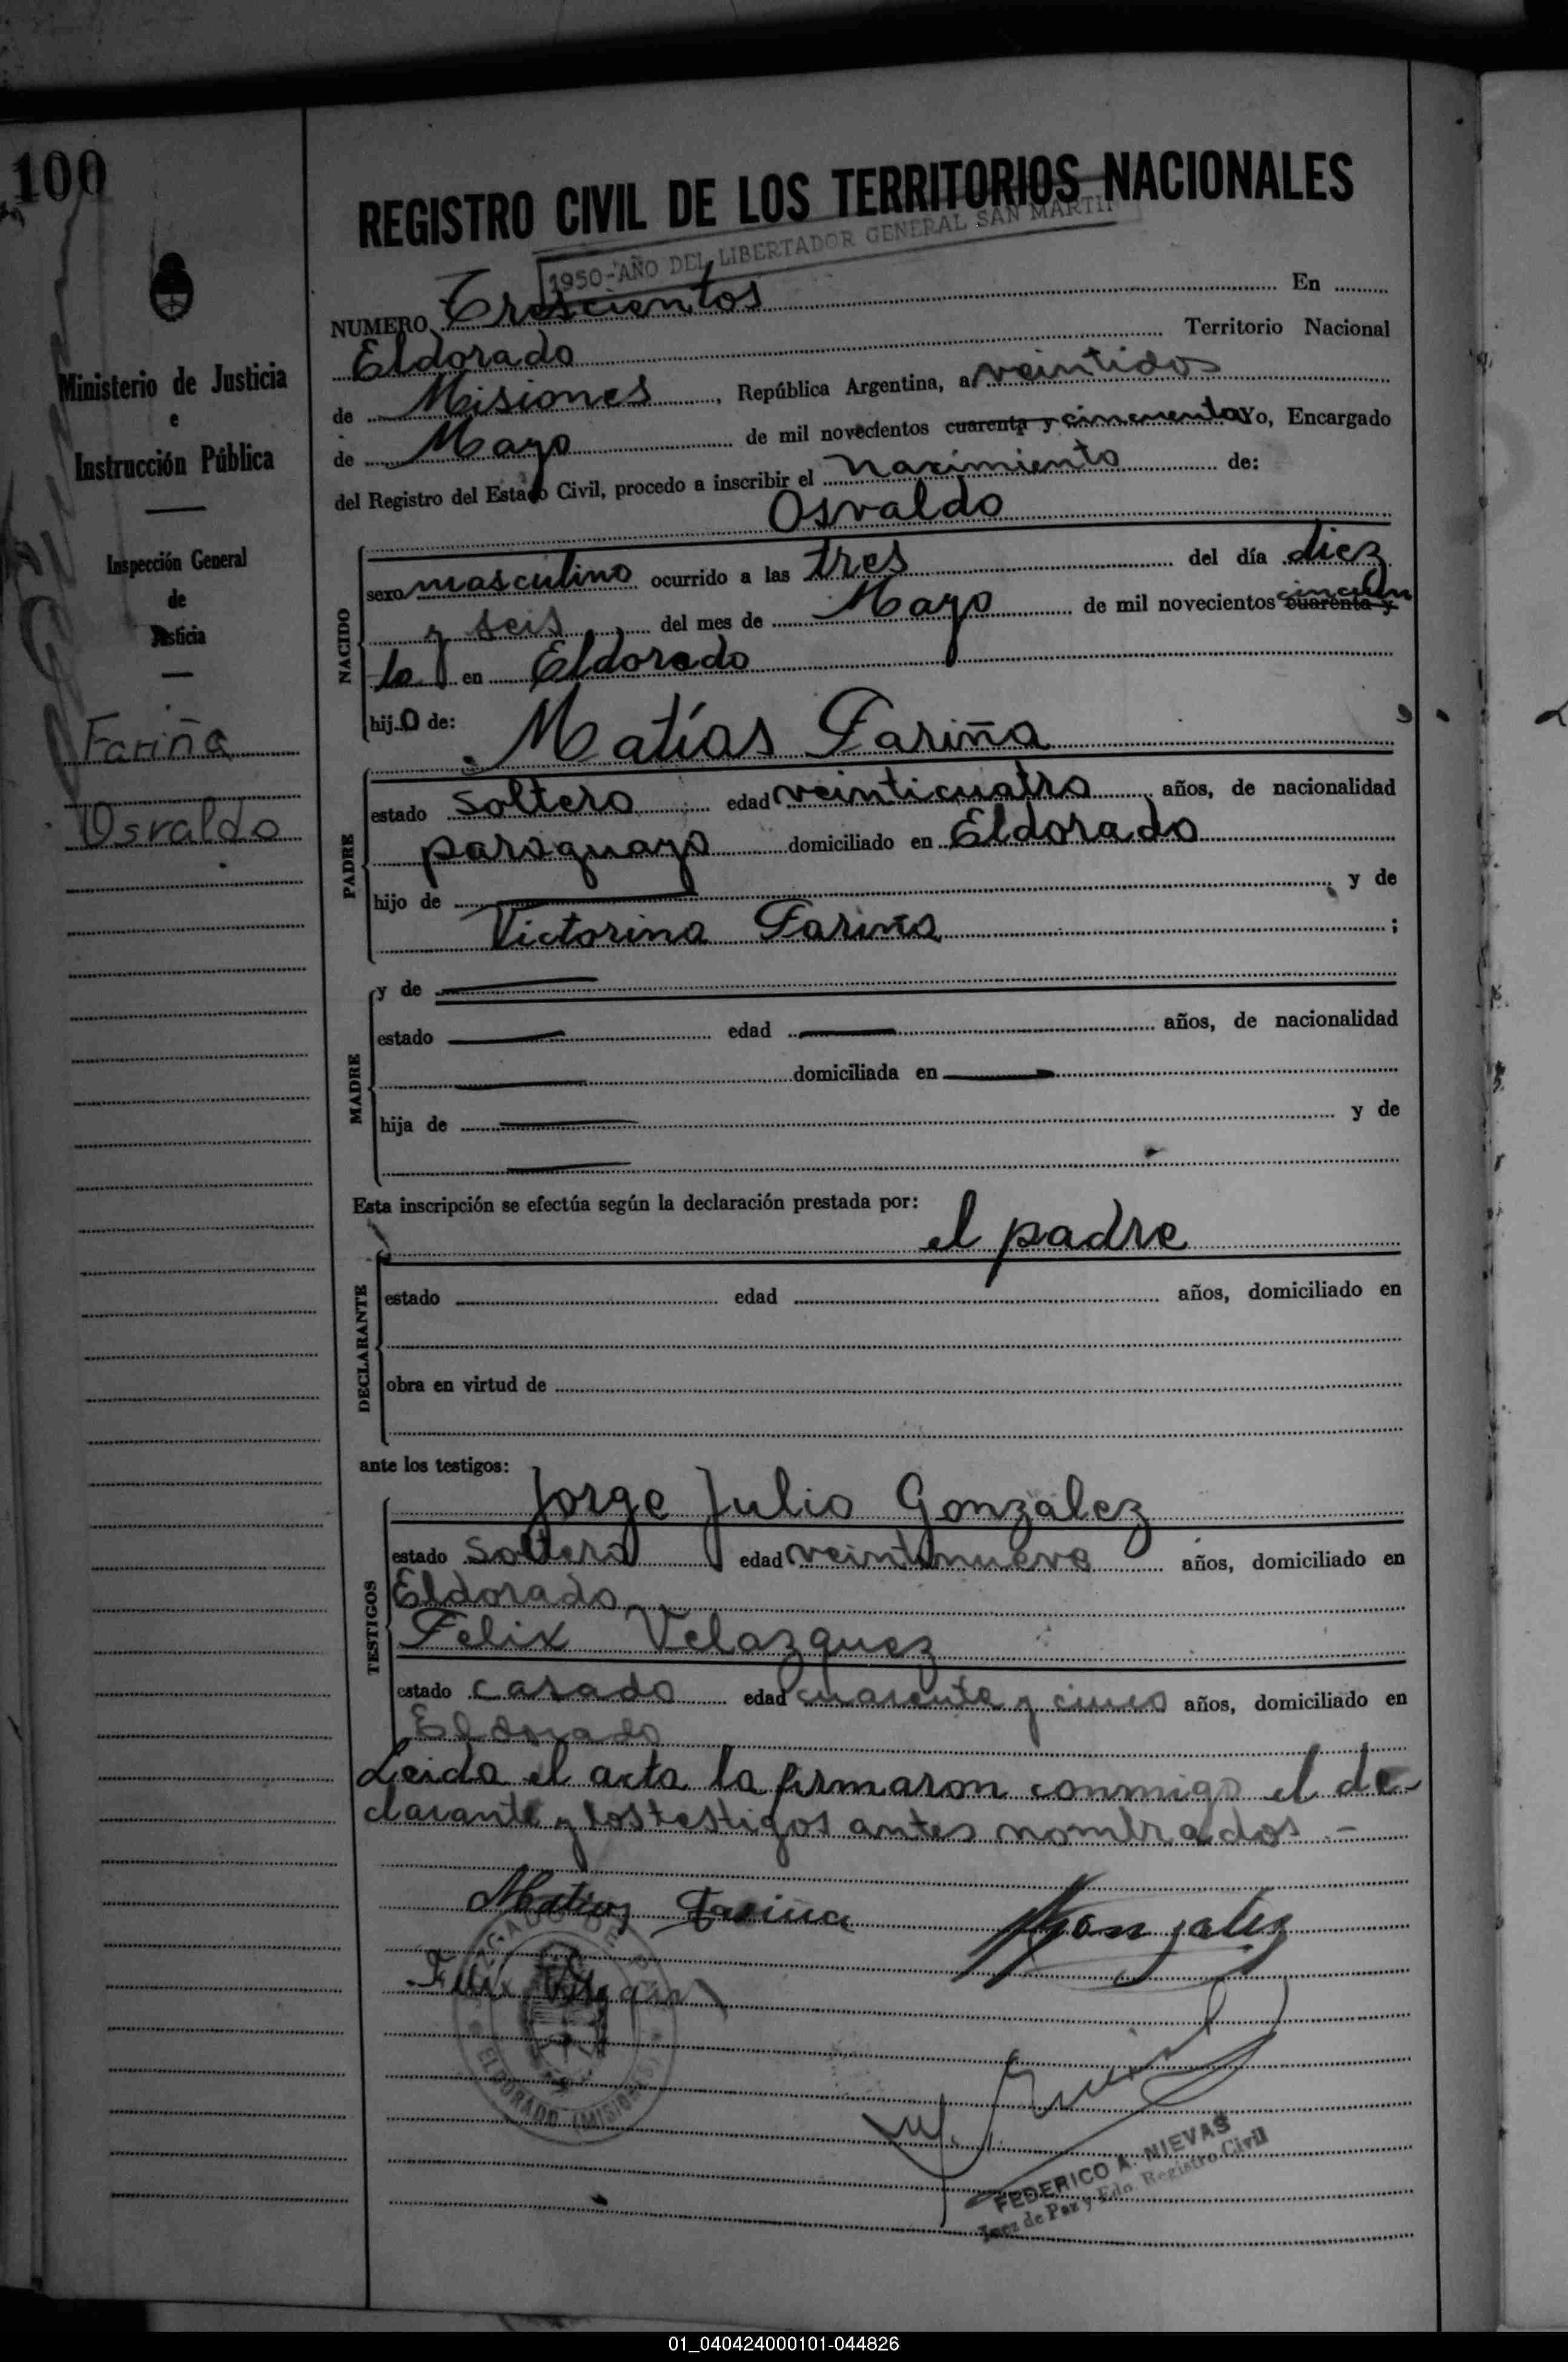 100
Ministerio de Justicia
e
Instrucción Pública
Inspección General
de
Justicia
Fariña
Osvaldo
REGISTRO CIVIL DE LOS TERRITORIOS NACIONALES
1950-AÑO DEL LIBERTADOR GENERAL SAN MARTIN
NUMERO Trescientos En
Eldorado Territorio Nacional
de Misiones, República Argentina, a veintidos
de Mayo de mil novecientos cuarenta y cincuenta Yo, Encargado
del Registro del Estado Civil, procedo a inscribir el nacimiento de:
Osvaldo
NACIDO
sexo masculino ocurrido a las tres del día diez
y seis del mes de Mayo de mil novecientos cuarenta y cincuen
ta en Eldorado
hijo de:
Matías Fariña
PADRE
estado soltero edad veinticuatro años, de nacionalidad
paraguayo domiciliado en Eldorado
hijo de y de
Victorina Fariña ;
MADRE
y de
estado edad años, de nacionalidad
domiciliada en
hija de y de
Esta inscripción se efectúa según la declaración prestada por:
el padre
DECLARANTE
estado edad años, domiciliado en
obra en virtud de
ante los testigos:
Jorge Julio Gonzalez
TESTIGOS
estado soltero edad veintinueve años, domiciliado en
Eldorado
Felix Velazquez
estado casado edad cuarenta y cinco años, domiciliado en
Eldorado
Leida el acta la firmaron conmigo el de-
clarante y los testigos antes nombrados.-
Matias Fariña
Gonzalez
Felix
ELDORADO (MISIONES)
FEDERICO A. NIEVAS
Juez de Paz y Edo. Registro Civil
01_040424000101-044826